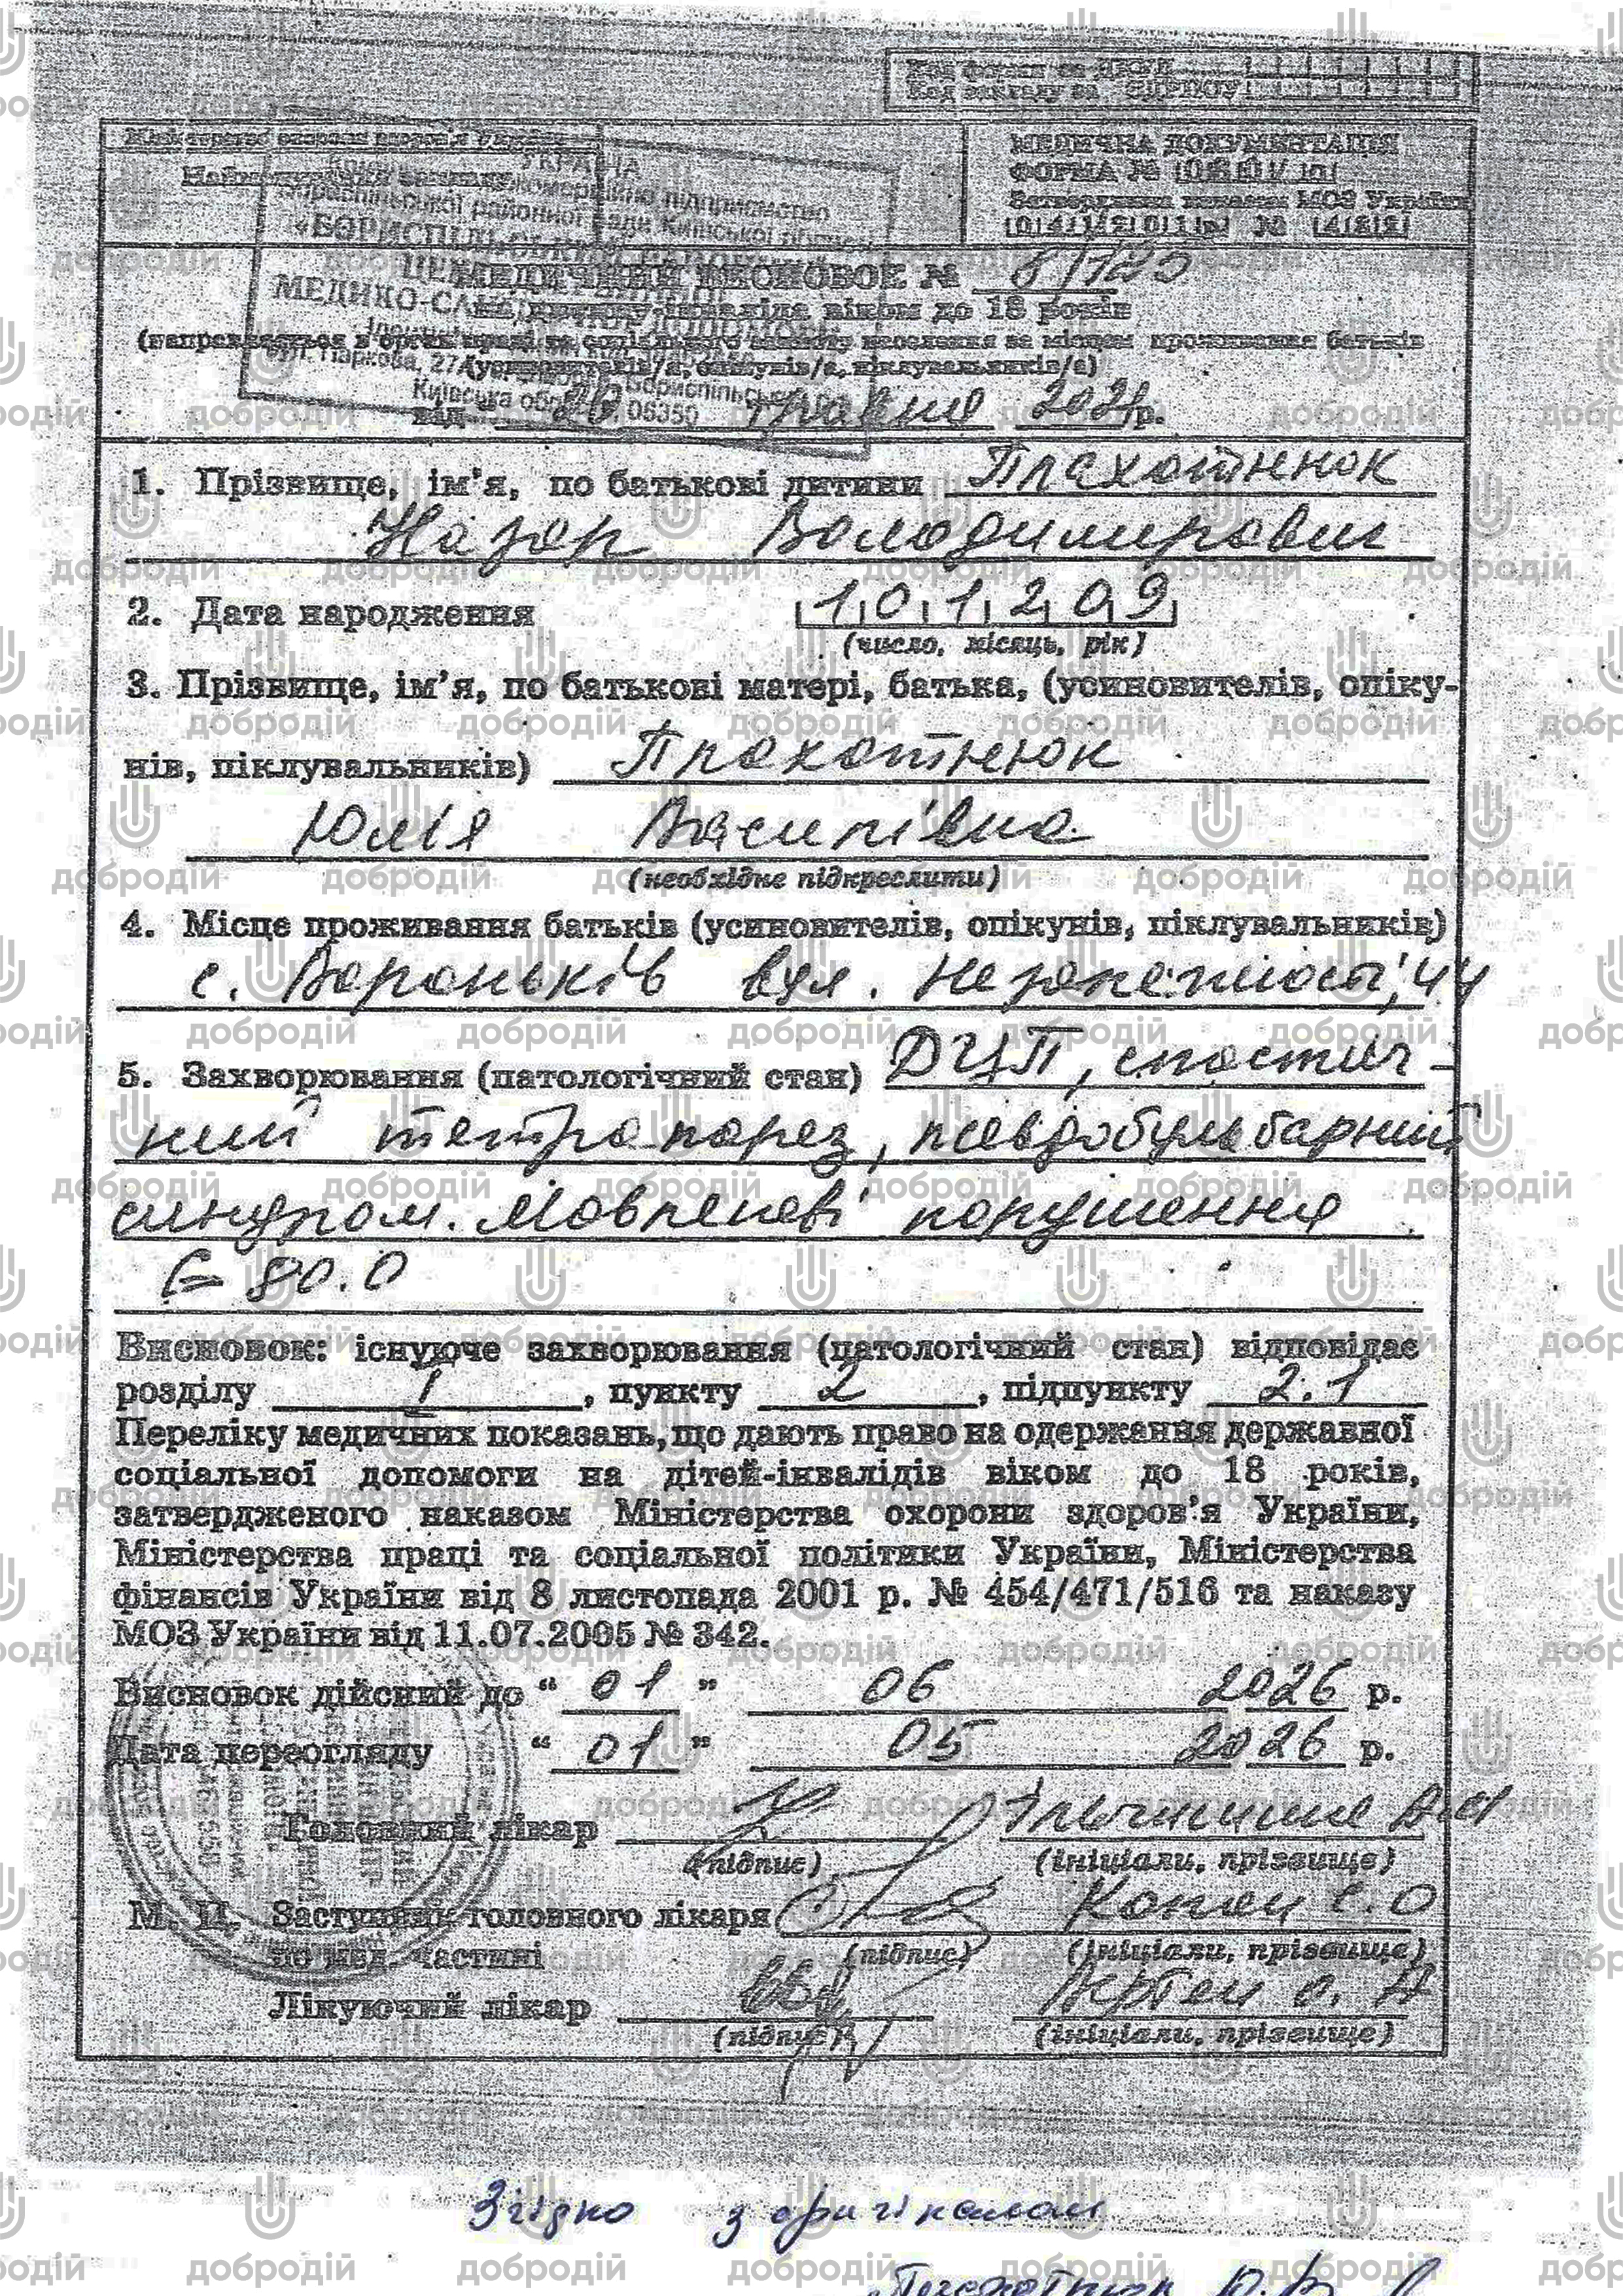 Код форми за ЗКУД
Код закладу за ЄДРПОУ
Міністерство охорони здоров'я України
Найменування закладу
МЕДИЧНА ДОКУМЕНТАЦІЯ
ФОРМА №
Затверджена наказом МОЗ України
УКРАЇНА
комерційне підприємство
районної ради Київської
МЕДИЧНИЙ ВИСНОВОК №
на дитину-інваліда віком до 18 років
(направляється в орган праці та соціального захисту населення за місцем проживання батьків
(усиновителів/а, опікунів/а, піклувальників/а)
від 26 травня 2021 р.
1. Прізвище, ім'я, по батькові дитини Плахотнюк
Назар Володимирович
2. Дата народження 10 12 09
(число, місяць, рік)
3. Прізвище, ім'я, по батькові матері, батька, (усиновителів, опіку-
нів, піклувальників) Плахотнюк
Юлія Василівна
(необхідне підкреслити)
4. Місце проживання батьків (усиновителів, опікунів, піклувальників)
с. Вороньків вул. Незалежності, 44
5. Захворювання (патологічний стан) ДЦП, спастич-
ний тетрапарез, псевдобульбарний
синдром. Мовленеві порушення
G 80.0
Висновок: існуюче захворювання (патологічний стан) відповідає
розділу I, пункту 2, підпункту 2.1
Переліку медичних показань, що дають право на одержання державної
соціальної допомоги на дітей-інвалідів віком до 18 років,
затвердженого наказом Міністерства охорони здоров'я України,
Міністерства праці та соціальної політики України, Міністерства
фінансів України від 8 листопада 2001 р. № 454/471/516 та наказу
МОЗ України від 11.07.2005 № 342.
Висновок дійсний до “ 01 ” 06 2026 р.
Дата переогляду “ 01 ” 05 2026 р.
Головний лікар
(підпис) (ініціали, прізвище)
М. П. Заступник головного лікаря
по мед. частині
(підпис) (ініціали, прізвище)
Лікуючий лікар
(підпис) (ініціали, прізвище)
Згідно з оригіналом
добродій